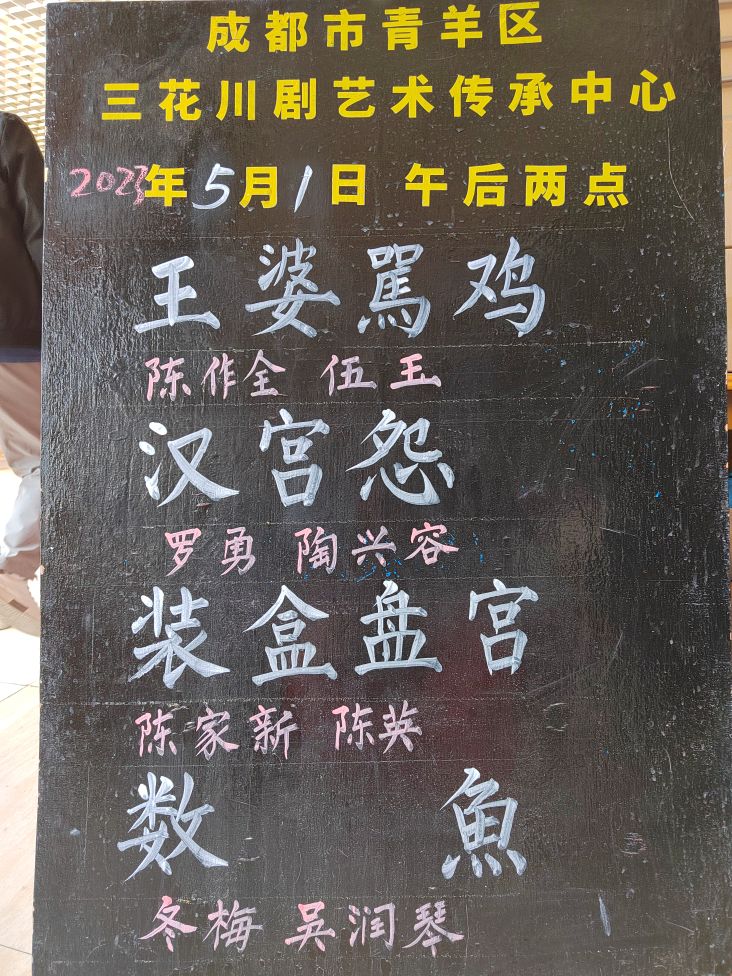 成都市青羊区
三花川剧艺术传承中心
2023年5月1日 午后两点
王婆駡鸡
陈作全 伍玉
汉宫怨
罗勇 陶兴容
装盒盘宫
陈家新 陈英
数 魚
冬梅 吴润琴